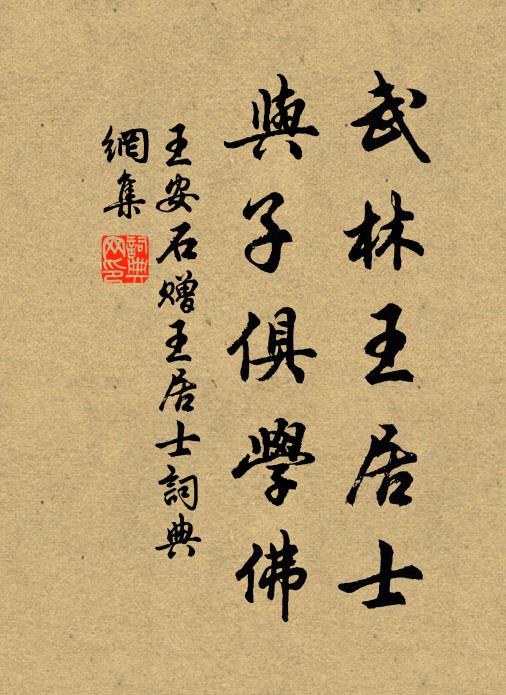 武林王居士
與子俱學佛
王安石贈王居士詞典
網集
詞典网印